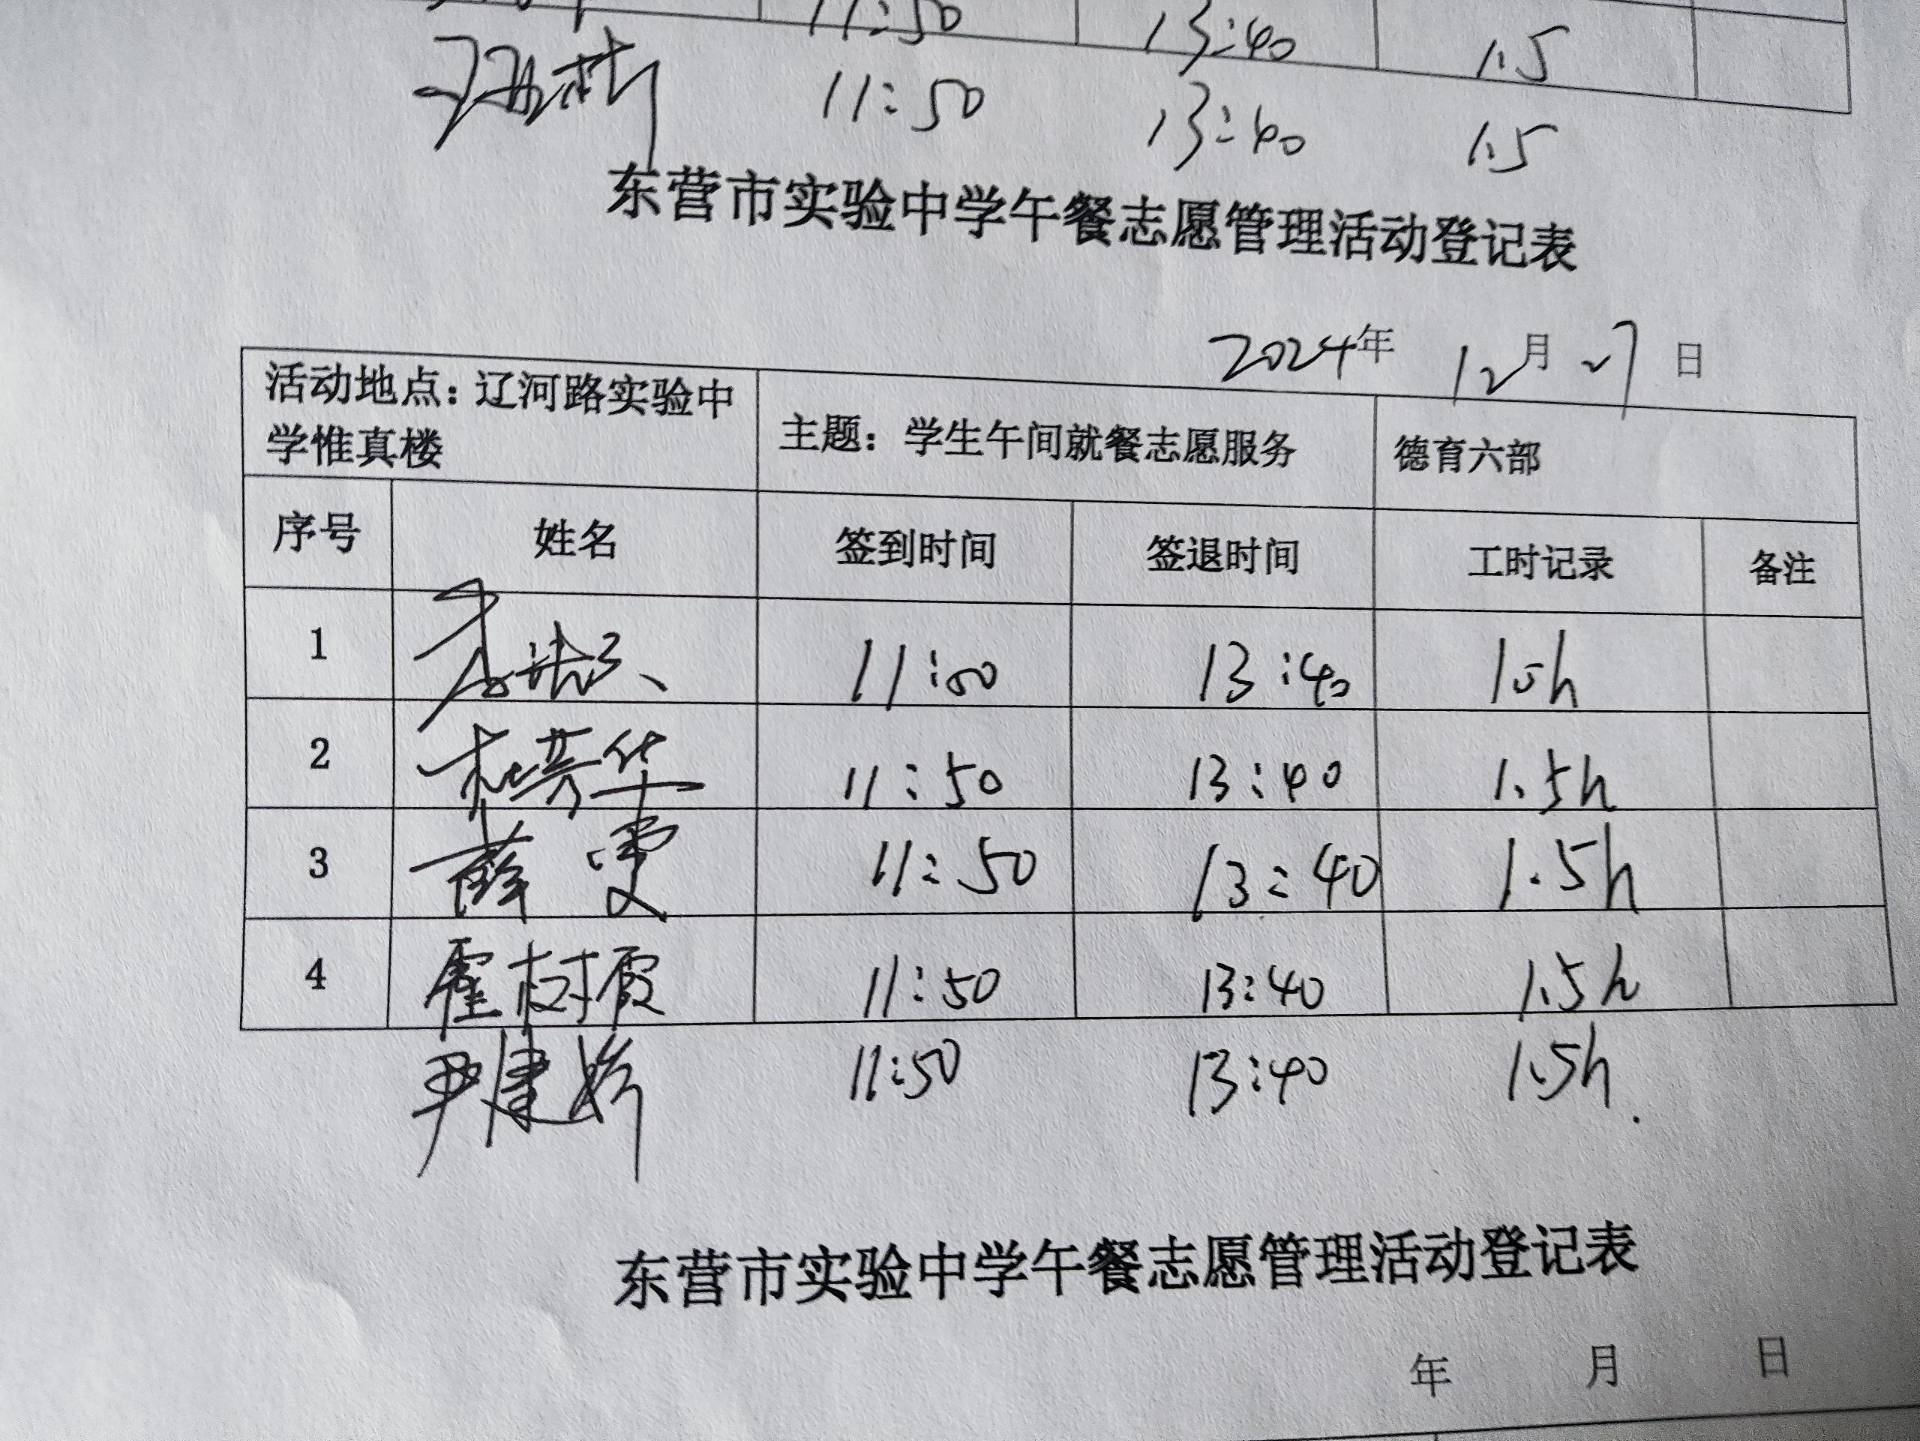 11:50 13:40 1.5
11:50 13:40 1.5
东营市实验中学午餐志愿管理活动登记表
2024年 12月 27日
活动地点：辽河路实验中
学惟真楼
主题：学生午间就餐志愿服务
德育六部
序号 姓名 签到时间 签退时间 工时记录 备注
1 11:50 13:40 1.5h
2 杜芳华 11:50 13:40 1.5h
3 薛雯 11:50 13:40 1.5h
4 霍树霞 11:50 13:40 1.5h
尹建娇 11:50 13:40 1.5h.
东营市实验中学午餐志愿管理活动登记表
年 月 日